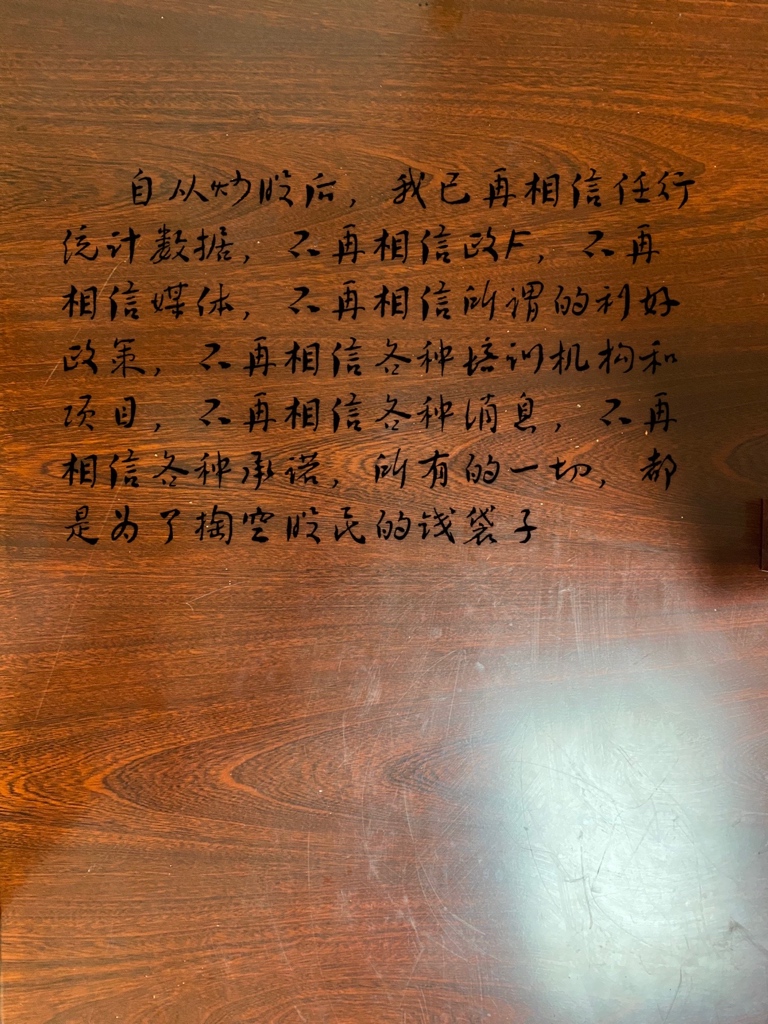 自从炒股后，我已再相信任行
统计数据，不再相信政F，不再
相信媒体，不再相信所谓的利好
政策，不再相信各种培训机构和
项目，不再相信各种消息，不再
相信各种承诺，所有的一切，都
是为了掏空股民的钱袋子